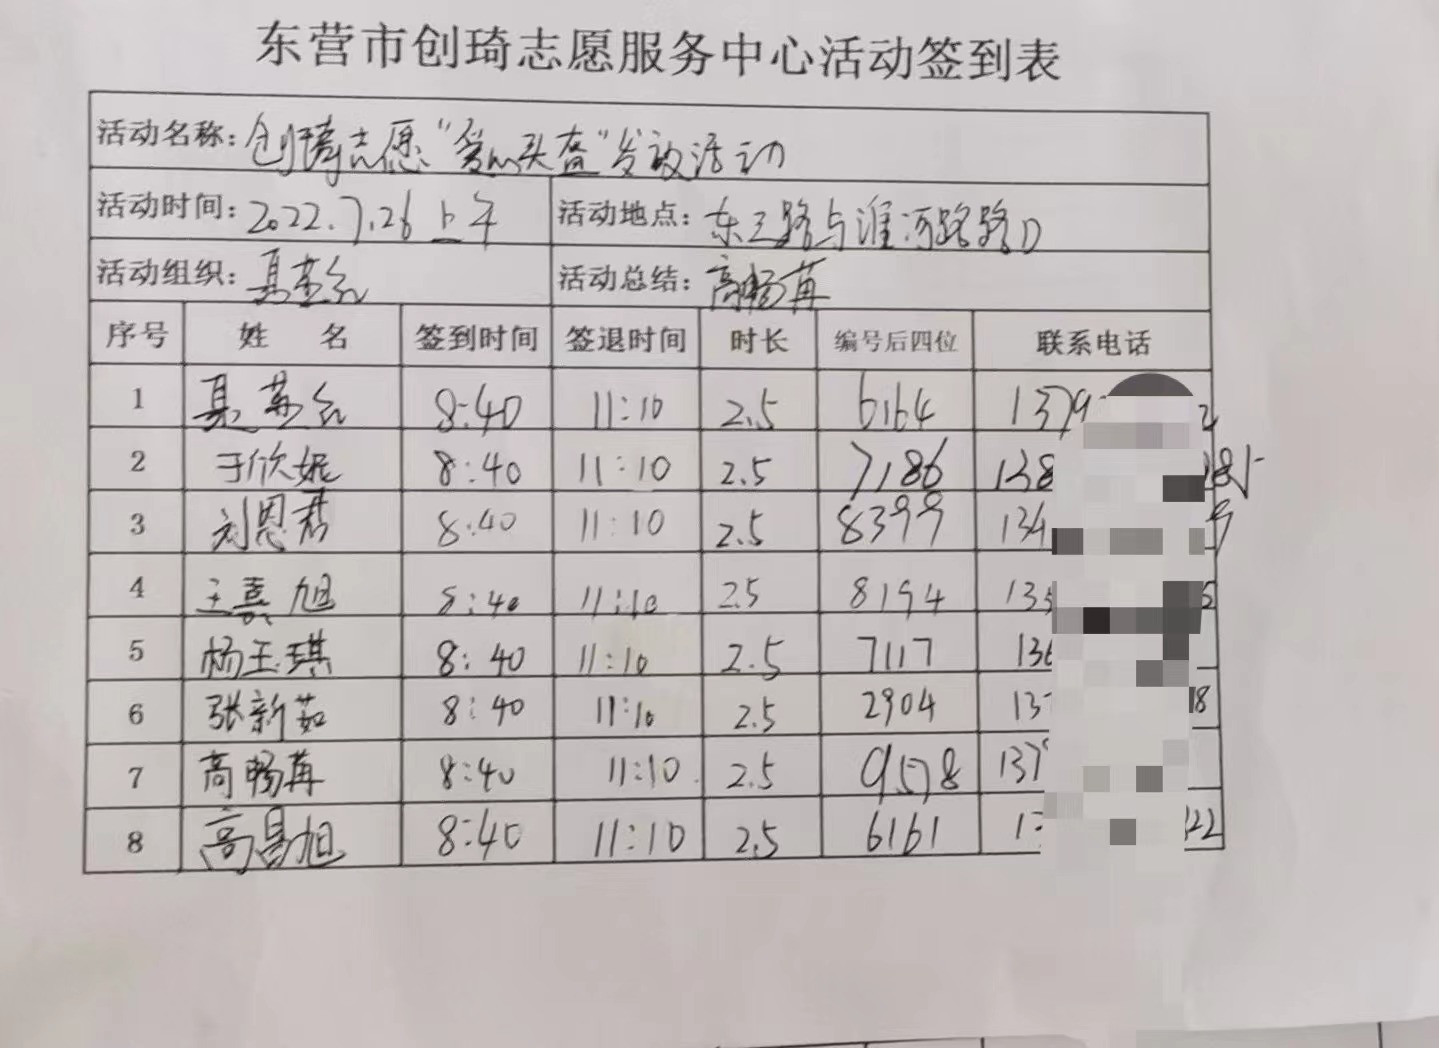 东营市创琦志愿服务中心活动签到表
活动名称：创琦志愿“爱心头盔”发放活动
活动时间：2022.7.26上午 活动地点：东三路与淮河路路口
活动组织： 活动总结：高畅苒
序号 姓 名 签到时间 签退时间 时长 编号后四位 联系电话
1 8:40 11:10 2.5 6164 1379
2 于欣妮 8:40 11:10 2.5 7186 138
3 刘恩君 8:40 11:10 2.5 8399 134
4 王熹旭 8:40 11:10 2.5 8194 135
5 杨玉琪 8:40 11:10 2.5 7117 136
6 张新茹 8:40 11:10 2.5 2904 137 18
7 高畅苒 8:40 11:10 2.5 9578 137
8 高昌旭 8:40 11:10 2.5 6161 13 22